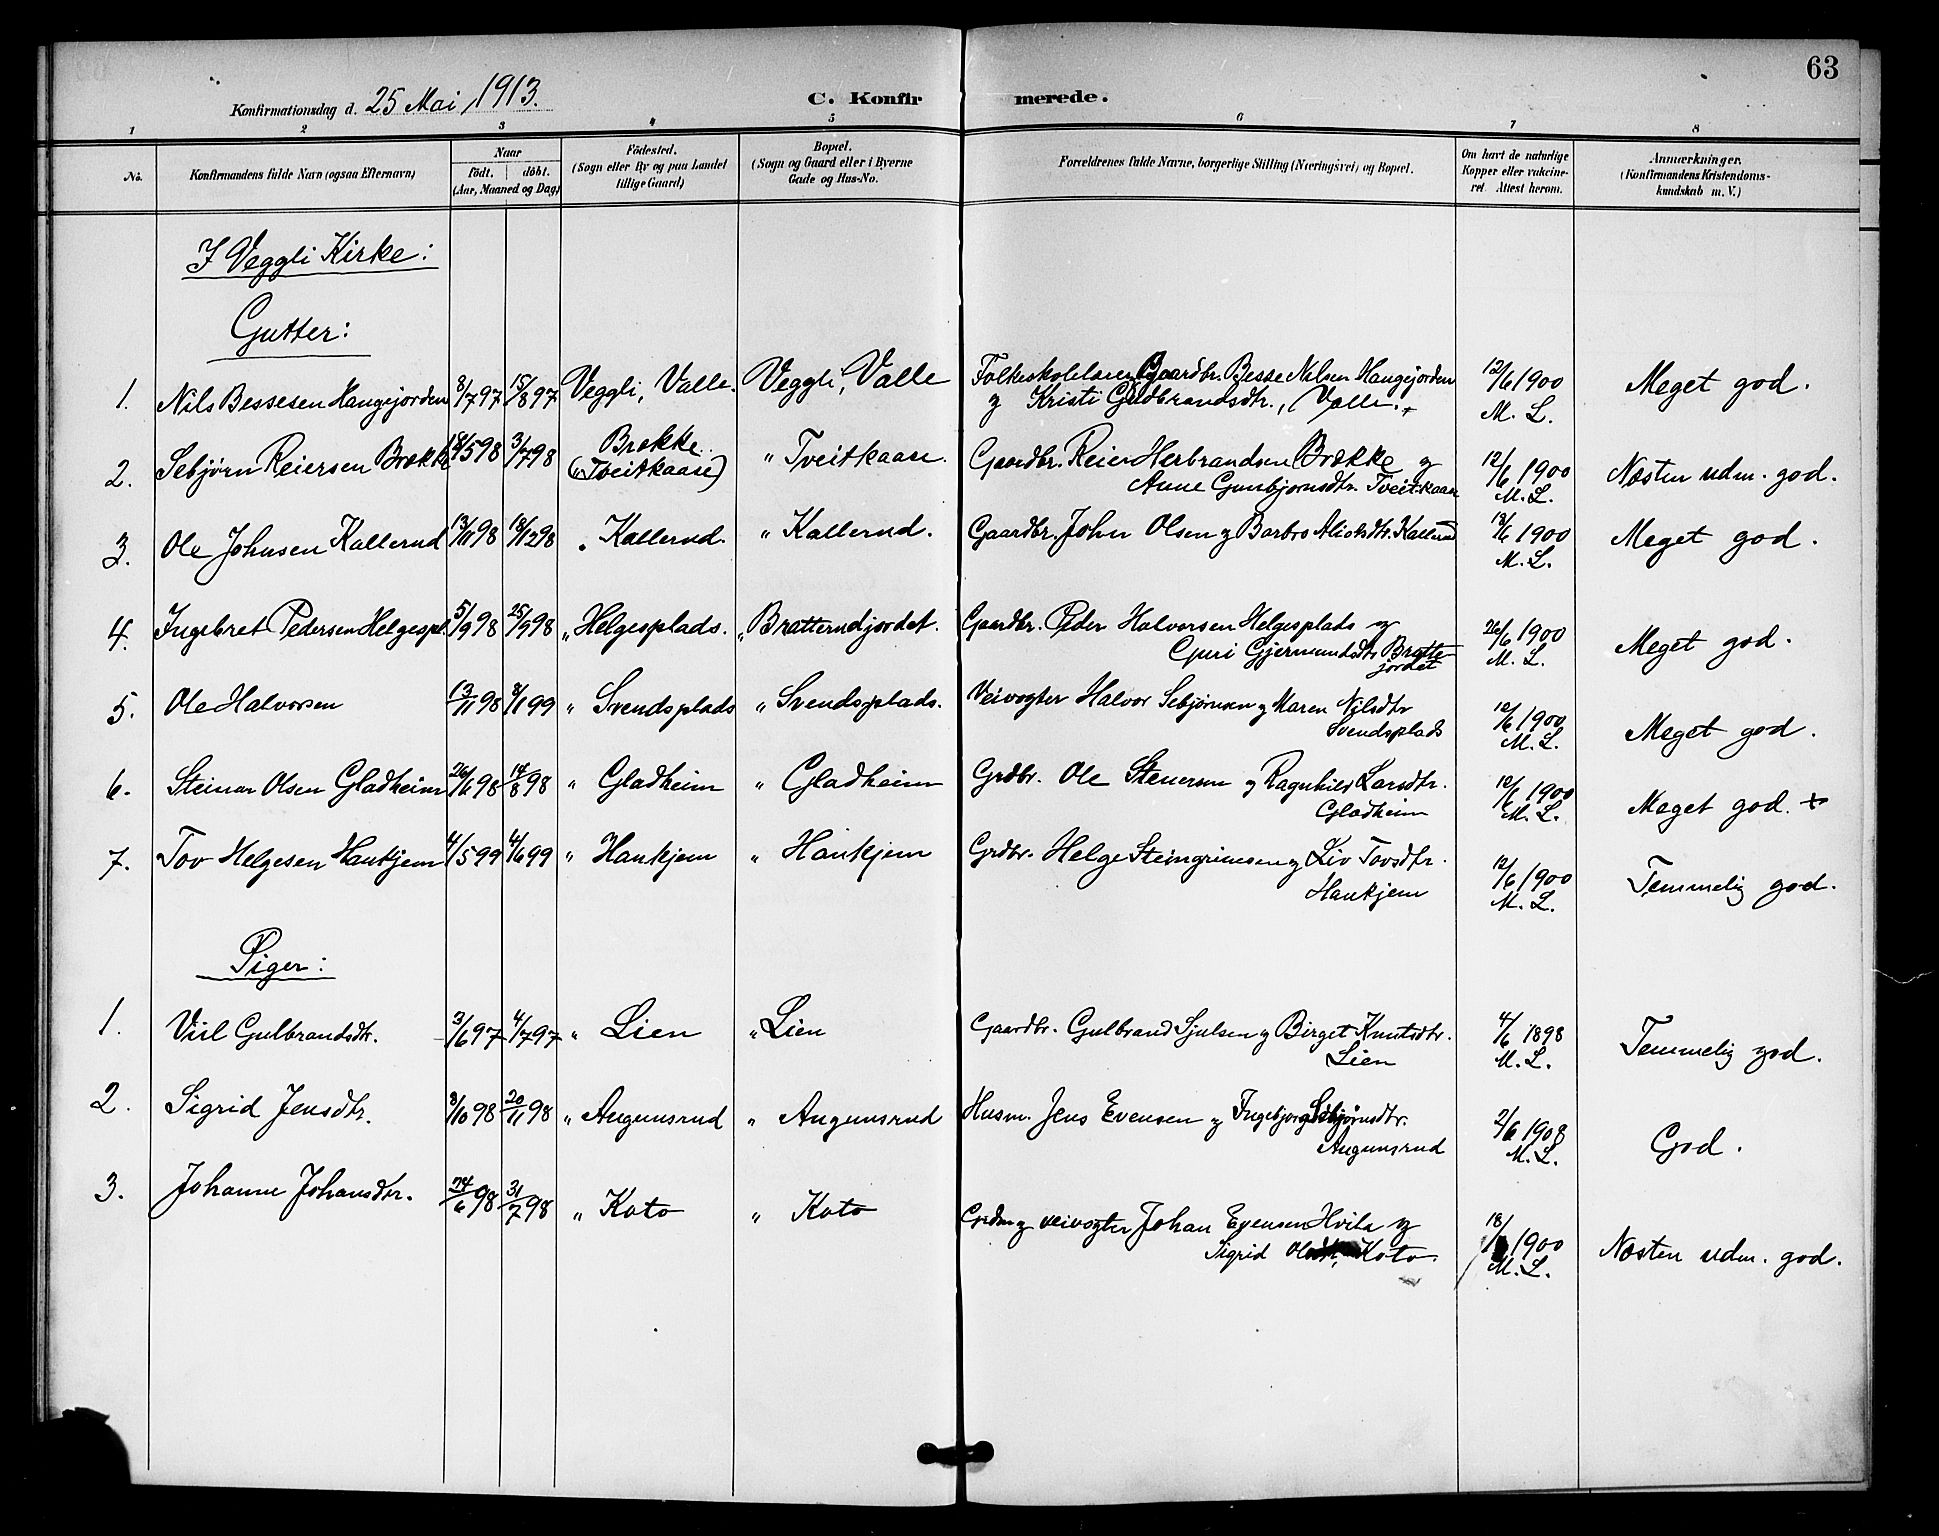 63
Konfirmationsdag d. 25 Mai, 1913.
C. Konfirmerede.
1 2 3 4 5 6 7 8
No.
Konfirmandens fulde Navn (ogsaa Efternavn)
Naar
født. døbt.
(Aar, Maaned og Dag)
Fødested.
(Sogn eller By og paa Landet
tillige Gaard)
Bopæl.
(Sogn og Gaard eller i Byerne
Gade og Hus-No.
Forældrenes fulde Navne, borgerlige Stilling (Næringsvei) og Bopæl.
Om havt de naturlige
Kopper eller vakcine-
ret. Attest herom.
Anmærkninger.
(Konfirmandens Kristendoms-
kundskab m. V.)
I Veggli Kirke:
Gutter:
1. Nils Bessesen Haugejorden 8/7 97 15/8 97 Veggli, Valle. Veggli, Valle Folkeskolelærer, Gaardbr. Besse Nilsen Haugejorden 12/6 1900 Meget god.
og Kristi Gudbrandsdtr., Valle. M. L.
2. Sebjørn Reiersen Brække 18/5 98 3/7 98 Brække " Tveitkaase Gaardbr. Reier Herbrandsen Brække og 12/6 1900 Næsten udm. god.
(" Tveitkaase) Anne Gunbjørnsdtr. Tveitkaase M. L.
3. Ole Johnsen Kallerud 13/11 98 18/12 98 " Kallerud. " Kallerud. Gaardbr. John Olsen og Barbro Kallerud 12/6 1900 Meget god.
M. L.
4. Ingebret Pedersen Helgespl. 5/9 98 25/9 98 " Helgesplads. " Bratterudjordet. Gaardbr. Peder Halvorsen Helgesplads og 26/6 1900 Meget god.
Guri Gjermundsdtr. Bratte- M. L.
jordet
5. Ole Halvorsen 13/11 98 8/1 99 " Svendsplads " Svendsplads. Veivogter Halvor Sebjørnsen og Maren Nilsdtr 12/6 1900 Meget god.
Svendsplads M. L.
6. Steinar Olsen Gladheim 26/6 98 14/8 98 " Gladheim " Gladheim Grdbr. Ole Stenersen og Ragnhild Larsdtr. 12/6 1900 Meget god. +
Gladheim M. L.
7. Tov Helgesen Haukjem 4/5 99 4/6 99 " Haukjem " Haukjem Grdbr. Helge Steingrimsen og Liv Tovsdtr. 12/6 1900 Temmelig god.
Haukjem M. L.
Piger:
1. Viel Gulbrandsdtr. 3/6 97 4/7 97 " Lien " Lien Gaardbr. Gulbrand Sjulsen og Birget Knutsdtr. 4/6 1898 Temmelig god.
Lien M. L.
2. Sigrid Jensdtr. 8/10 98 20/11 98 " Augunsrud " Augunsrud Husm. Jens Evensen og Ingebjørg Sebjørnsdtr. 2/6 1908 God.
Augunsrud M. L.
3. Johanne Johansdtr. 24/6 98 31/7 98 " Koto " Koto og veivogter Johan Evensen Hvila og 18/ 1900 Næsten udm. god.
Sigrid Koto. M. L.